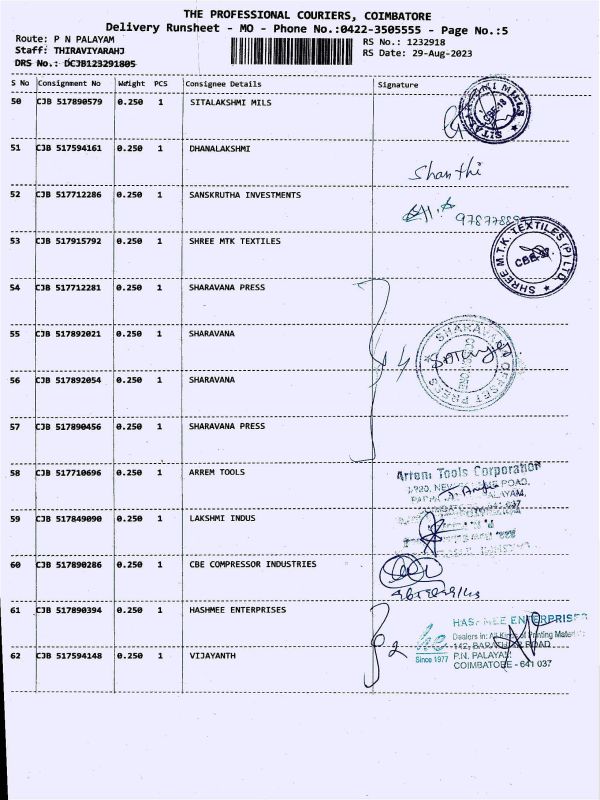 THE PROFESSIONAL COURIERS, COIMBATORE
Delivery Runsheet - MO - Phone No.:0422-3505555 - Page No.:5
Route: P N PALAYAM
RS No.: 1232918
Staff: THIRAVIYARAHJ
RS Date: 29-Aug-2023
DRS No.: DCJB123291805
S No Consignment No Weight PCS Consignee Details Signature
50 CJB 517890579 0.250 1 SITALAKSHMI MILS
51 CJB 517594161 0.250 1 DHANALAKSHMI
Shanthi
52 CJB 517712286 0.250 1 SANSKRUTHA INVESTMENTS
53 CJB 517915792 0.250 1 SHREE MTK TEXTILES
SHREE M.T.K. TEXTILES (P) LTD.
54 CJB 517712281 0.250 1 SHARAVANA PRESS
55 CJB 517892021 0.250 1 SHARAVANA
SHARAVANA OFFSET PRESS
COIMBATORE
56 CJB 517892054 0.250 1 SHARAVANA
57 CJB 517890456 0.250 1 SHARAVANA PRESS
58 CJB 517710696 0.250 1 ARREM TOOLS
Arrem Tools Corporation
59 CJB 517849090 0.250 1 LAKSHMI INDUS
60 CJB 517890286 0.250 1 CBE COMPRESSOR INDUSTRIES
61 CJB 517890394 0.250 1 HASHMEE ENTERPRISES
HASHMEE ENTERPRISES
Dealers in: All Kinds of Printing Materials
142, BARATHIAR ROAD
Since 1977 P.N. PALAYAM
COIMBATORE - 641 037
2
62 CJB 517594148 0.250 1 VIJAYANTH